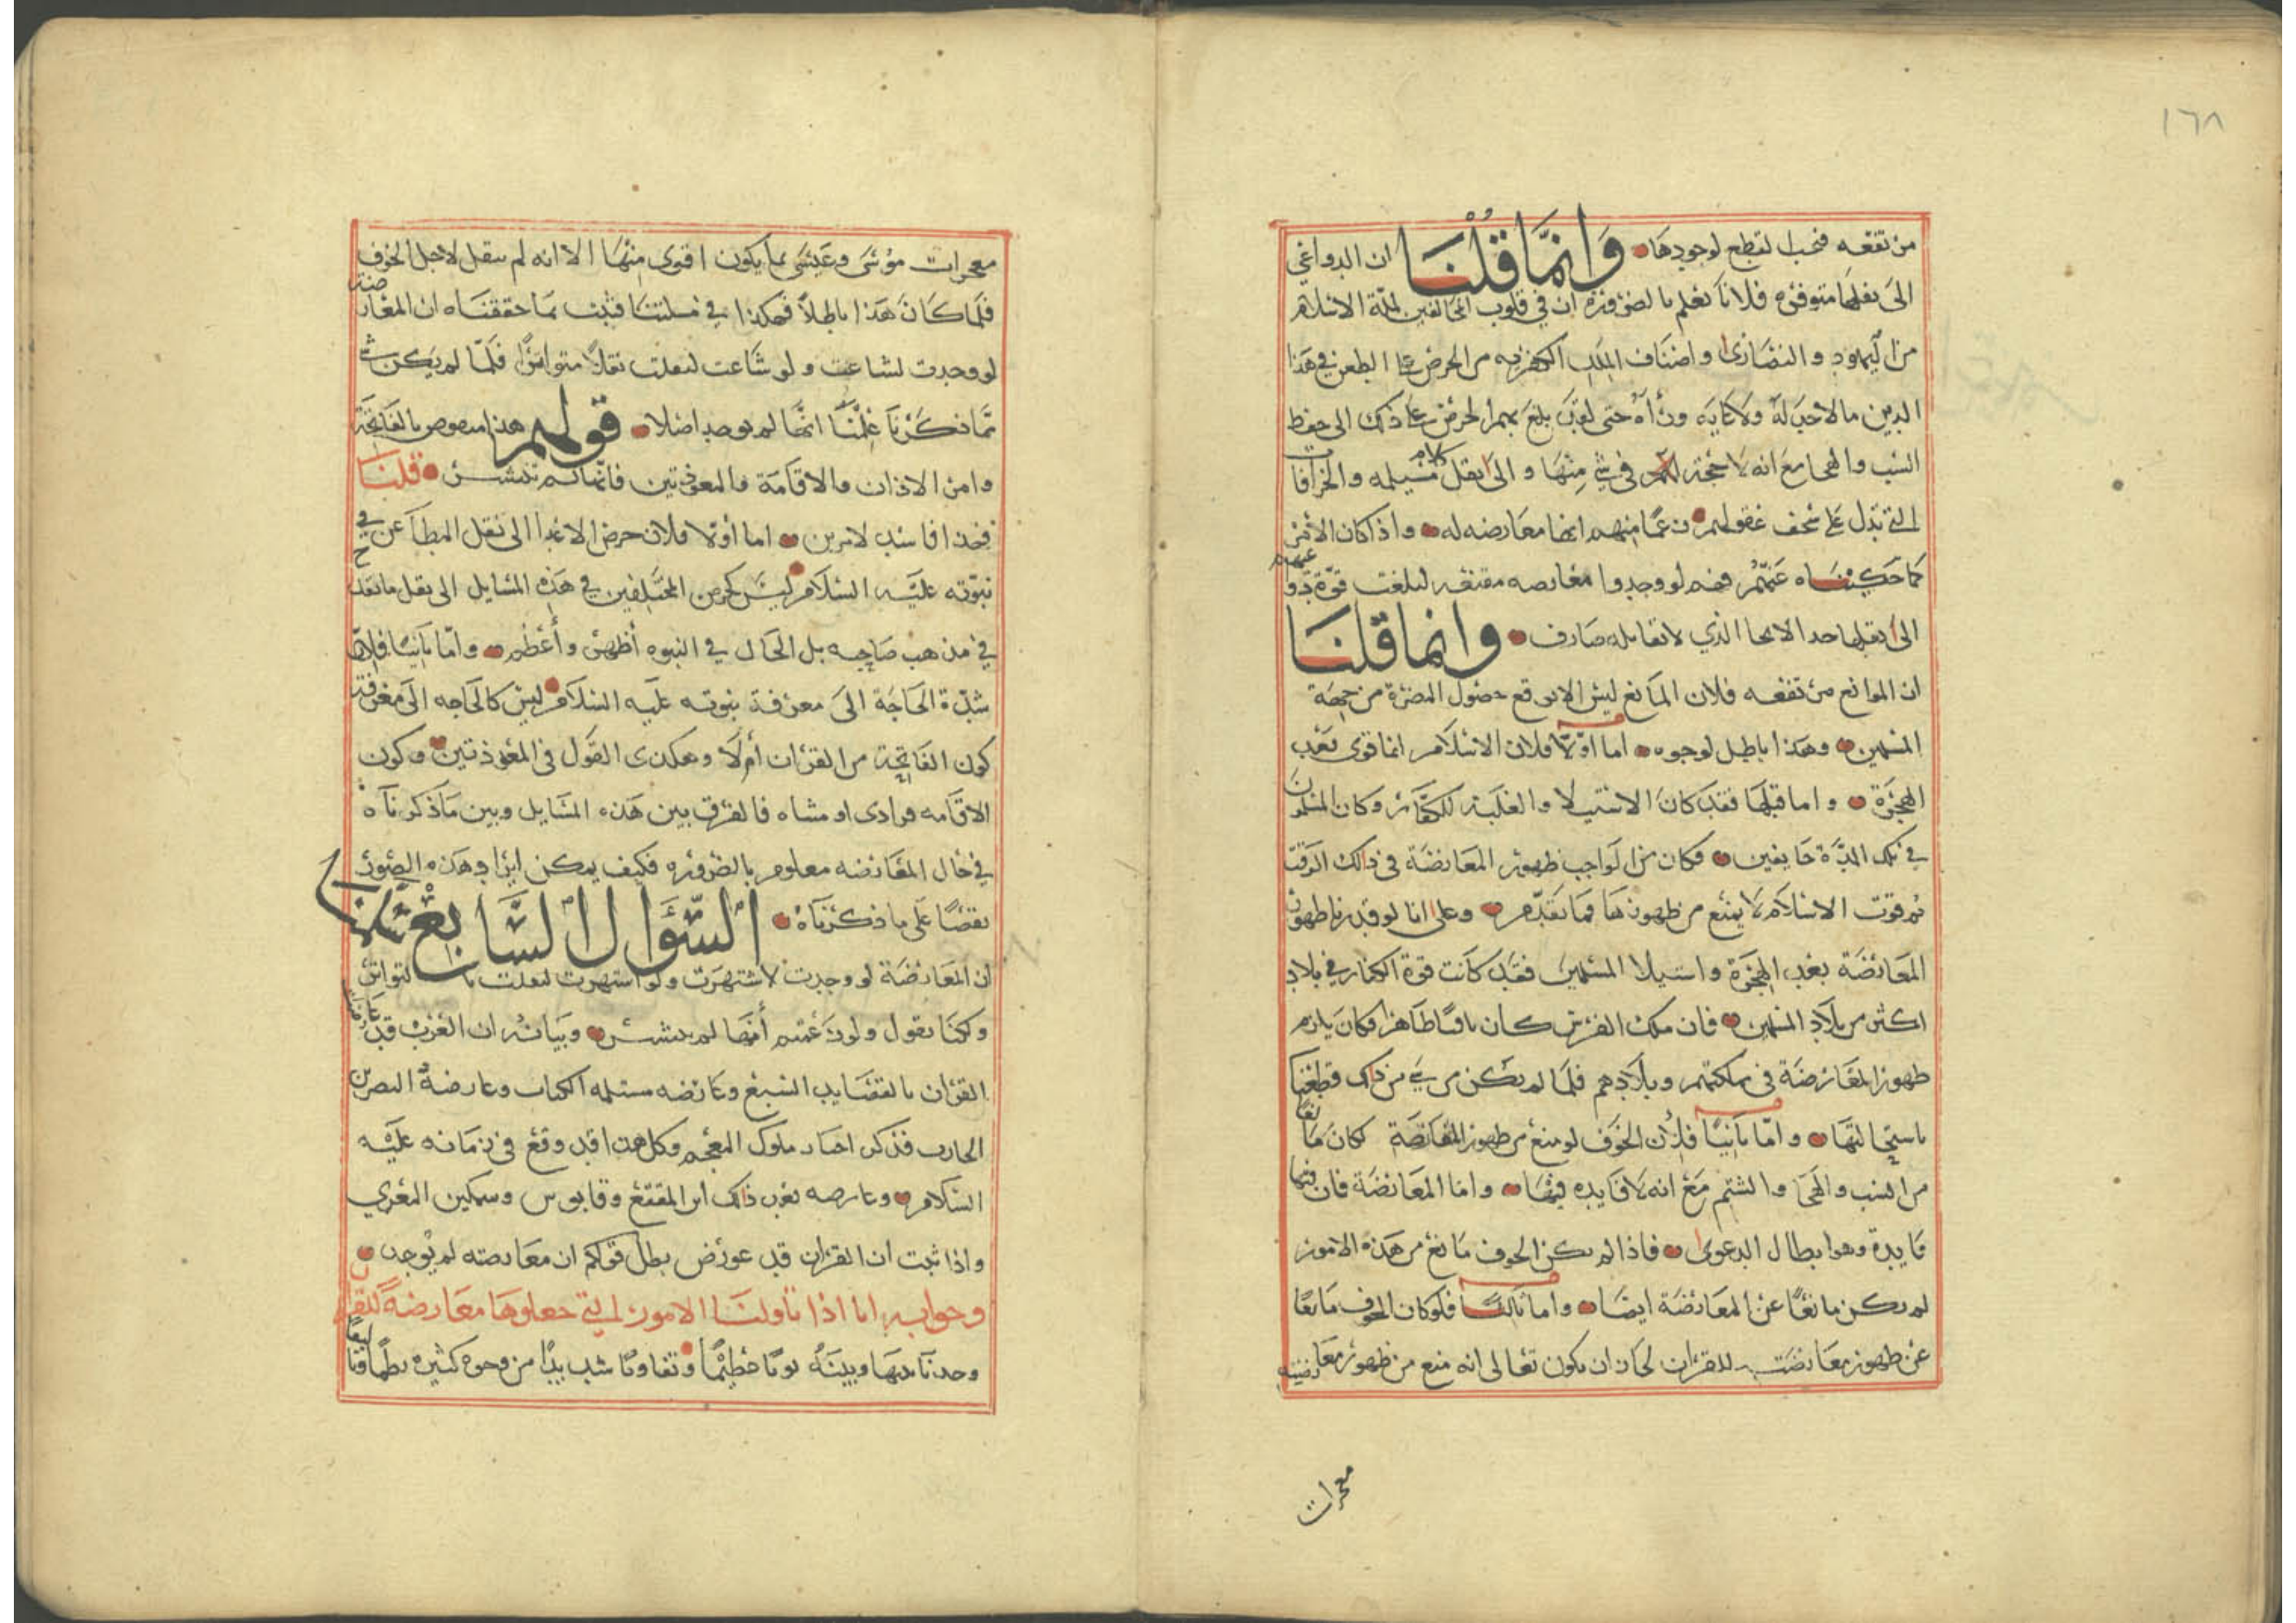 ١٦٨
من تفعه فيجب القطع لوجودها وانما قلنا ان الدواعي
الى نقلها متوفره فلانا نعلم بالضروره ان في قلوب المخالفين لملة الاسلام
من اليهود والنصارى واصناف الملل الكفريه من الحرص على الطعن في هذا
الدين مالاحد له ولا غايه ورآه حتى لقد بلغ بهم الحرص على ذلك الى حفظ
السب والهجا مع انه لا حجة لهم في شي منها والى نقل كلام مسيلمه والخرافات
التي تدل على سخف عقولهم زعما منهم انها معارضه له واذا كان الامر
كما حكيناه عنهم فهم لو وجدوا معارصه مقنعه لبلغت قوة دواعيهم
الى نقلها حد الالجا الذي لا تقابله صارف وانما قلنا
ان الموانع مرتفعه فلان المانع ليس الا توقع حصول المضرة من جهة
المسلمين وهذا باطل لوجوه اما اولا فلان الاسلام انما قوى بعد
الهجرة واما قبلها فقد كان الاستيلا والغلبة للكفار وكان المسلمون
في تلك المدة خايفين فكان من الواجب ظهور المعارضة في ذالك الوقت
ثم قوت الاسلام لا يمنع من ظهورها فيما تقدم وعلى انا لو قدرنا ظهور
المعارضة بعد الهجرة واستيلا المسلمين فقد كانت قوة الكفار في بلاد
اكثر من بلاد المسلمين فان ملك الفرس كان باقيا ظاهرا فكان يلزم
ظهور المعارضة في مملكتهم وبلادهم فلما لم يكن من شي من ذالك قطعنا
باستحالتها واما ثانيا فلان الخوف لو منع من ظهور المعارضة لكان مانعا
من السب والهجا والشتم مع انه لا فايده فيها واما المعارضة فان فيها
فايدة وهو ابطال الدعوى فاذا لم يكن الخوف مانع من هذه الامور
لم يكن مانعا عن المعارضة ايضا واما ثالثا فلو كان الخوف مانعا
عن ظهور معارضت للقران لجاز ان يكون تعالى انه منع من ظهور معارضته
معجزات
معجزات موسى وعيسى بما يكون اقوى منها الا انه لم ينقل لاجل الخوف
فلما كان هذا باطلا فهكذا في مسلتنا فثبت بما حققناه ان المعارضة
لو وجدت لشاعت ولو شاعت لنقلت نقلا متواترا فلما لم يكن شي
مما ذكرنا علمنا انها لم توجد اصلا قولهم هذا منقوص بالفاتحة
وامر الاذان والاقامة والمعوذتين فانها لم تنتشر قلنا
هذا فاسد لامرين اما اولا فلان حرص الاعدا الى نقل المطاعن في
نبوته عليه السلام ليس كحرص المختلفين في هذه المسايل الى نقل ما يقدح
في مذهب صاحبه بل الحال في النبوه أظهر وأعظم واما ثانيا فلان
شدة الحاجة الى معرفة نبوته عليه السلام ليس كالحاجه الى معرفة
كون الفاتحة من القران أم لا وهكذى القول في المعوذتين وكون
الاقامه فرادى او مثناه فالفرق بين هذه المسايل وبين ماذكرناه
في حال المعارضه معلوم بالضروره فكيف يمكن ايراد هذه الصور
نقضا على ما ذكرناه السؤال السابع سلمنا
ان المعارضة لو وجدت لاشتهرت ولو اشتهرت لنقلت بالتواتر
ولكنا نقول ولم زعمتم أنها لم تنتشر وبيانه ان العرب قد عارضت
القران بالقصايد السبع وعارضه مسيلمه الكذاب وعارضه النضر بن
الحارث فذكر اخبار ملوك العجم وكل هذا قد وقع في زمانه عليه
السلام وعارضه بعد ذالك ابن المقفع وقابوس وسمكين المعري
واذا ثبت ان القران قد عورض بطل قولكم ان معارضته لم توجد
وجوابه انا اذا تاولنا الامور التي جعلوها معارضة للقران
وجدنا بينها وبينه بونا عظيما وتفاوتا شديدا من وجوه كثيره